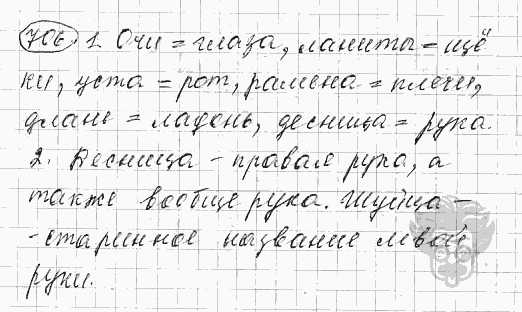 706. 1. Очи = глаза, ланиты = щё
ки, уста = рот, рамена = плечи,
длань = ладонь, десница = рука.
2. Десница - правая рука, а
также вообще рука. Шуйца -
- старинное название левой
руки.